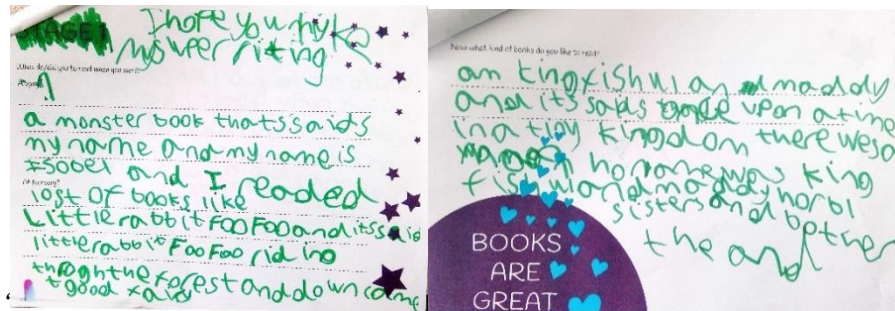 STAGE 1
I hope you my ke
my sweer riting
What did you to read when you were:
A young
a monster book thatssaids
my name and my name is
Isobel and I readed
At nursery?
lost of books like
Little rabbit Foo Foo and itssaid
little rabbit Foo Foo riding
throgh the forest and down came
t good fairy
Now what kind of books do you like to read?
an kingfishul and maddy
and its saids once upon a tim
in a tiny kingdom there weso
ho name was king
fishul and maddy horbl
sisters and bothe
the and
BOOKS
ARE
GREAT